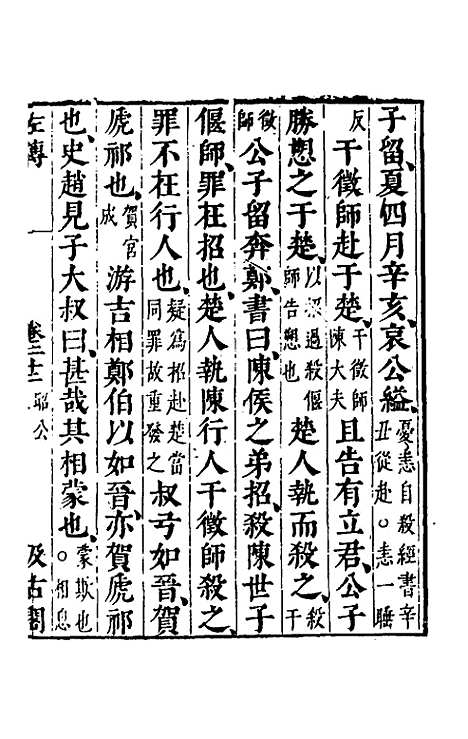 子留夏四月辛亥哀公縊憂恚自殺經書辛丑從赴○恚一睡
反干徵師赴于楚干徵師陳大夫且告有立君公子
勝愬之于楚以招過殺偃師告愬也楚人執而殺之殺干
徵師公子留奔鄭書曰陳侯之弟招殺陳世子
偃師罪在招也楚人執陳行人干徵師殺之
罪不在行人也疑爲招赴楚當同罪故重發之叔弓如晉賀
虒祁也賀官成游吉相鄭伯以如晉亦賀虒祁
也史趙見子大叔曰甚哉其相蒙也蒙欺也○相息
左傳 卷二十二 昭公 汲古閣